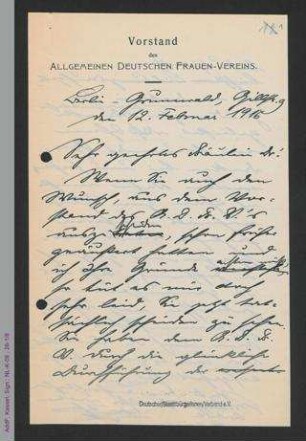 Vorstand
des
ALLGEMEINEN DEUTSCHEN FRAUEN-VEREINS.
Berlin-Grunewald, Gillstr. 9
den 12. Februar 1916
Sehr geehrtes Fräulein Dr.!
Wenn Sie auch den
Wunsch, aus dem Vor-
stand des A. D. F. V's
auszuscheiden, schon früher
geäussert hatten und
ich Ihre Gründe
so tut es mir doch
sehr leid, Sie jetzt tat-
sächlich scheiden zu sehen.
Sie haben dem A. D. F.
V. durch die glückliche
Durchführung der
Deutscher Staatsbürgerinnen-Verband e.V.
AddF, Kassel, Sign. NL-K-08 ; 26-1/8